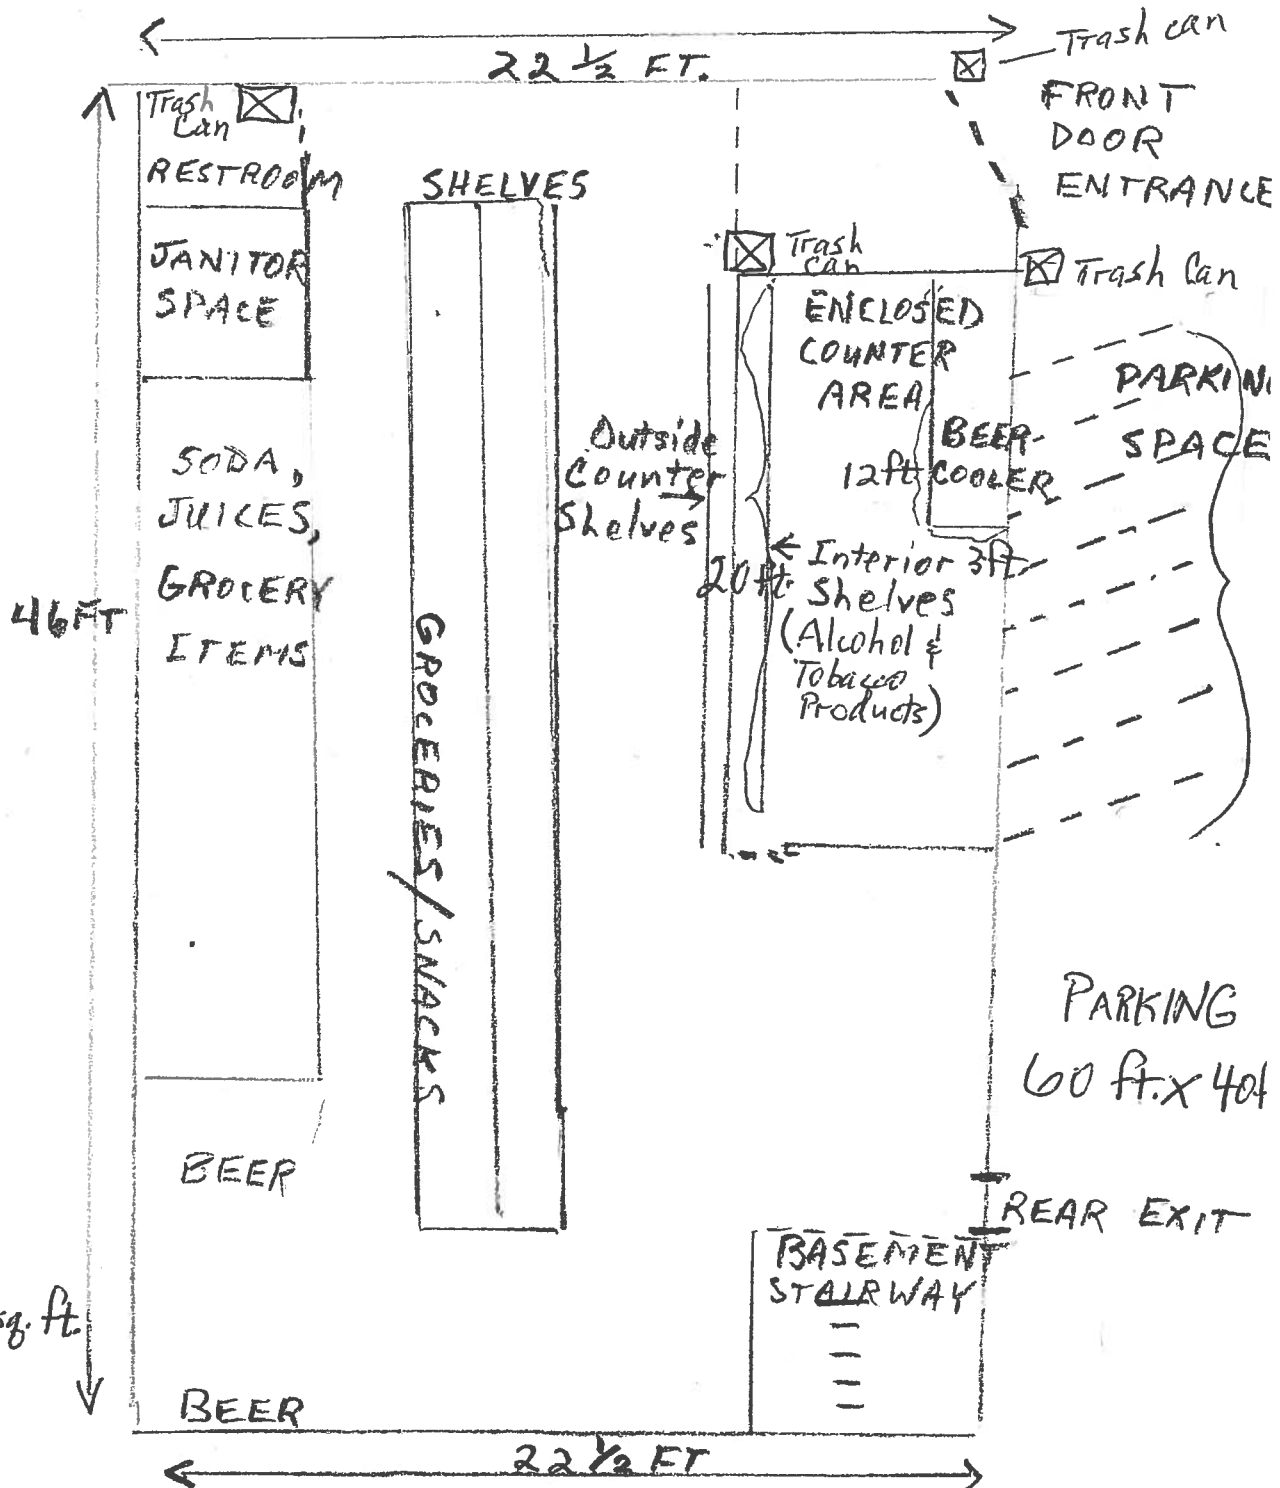 22 ½ FT.
Trash can
FRONT
DOOR
ENTRANCE
Trash
Can
RESTROOM
SHELVES
JANITOR
SPACE
Trash
can
Trash Can
ENCLOSED
COUNTER
AREA
PARKIN
SPACE
BEER
COOLER
12ft
Outside
Counter
Shelves
SODA,
JUICES,
GROCERY
ITEMS
46FT
20ft.
Interior
Shelves
(Alcohol &
Tobacco
Products)
3ft
GROCERIES/SNACKS
PARKING
60 ft. x 40f
BEER
REAR EXIT
BASEMENT
STAIRWAY
sq. ft.
BEER
22 ½ FT